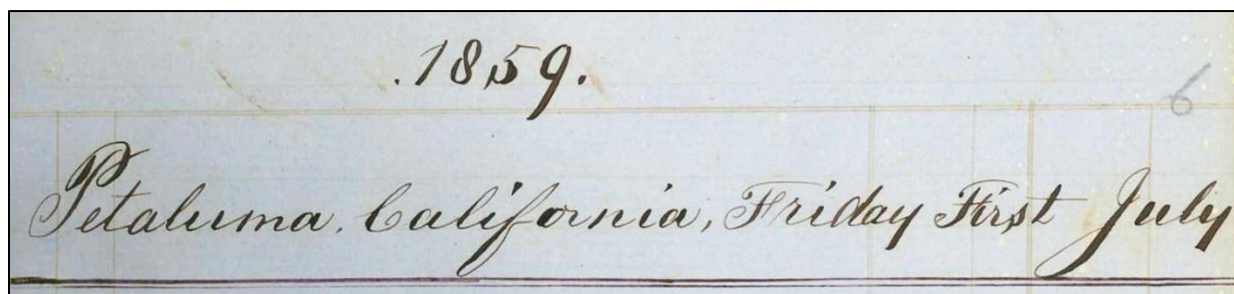 .1859.
6
Petaluma, California, Friday First July